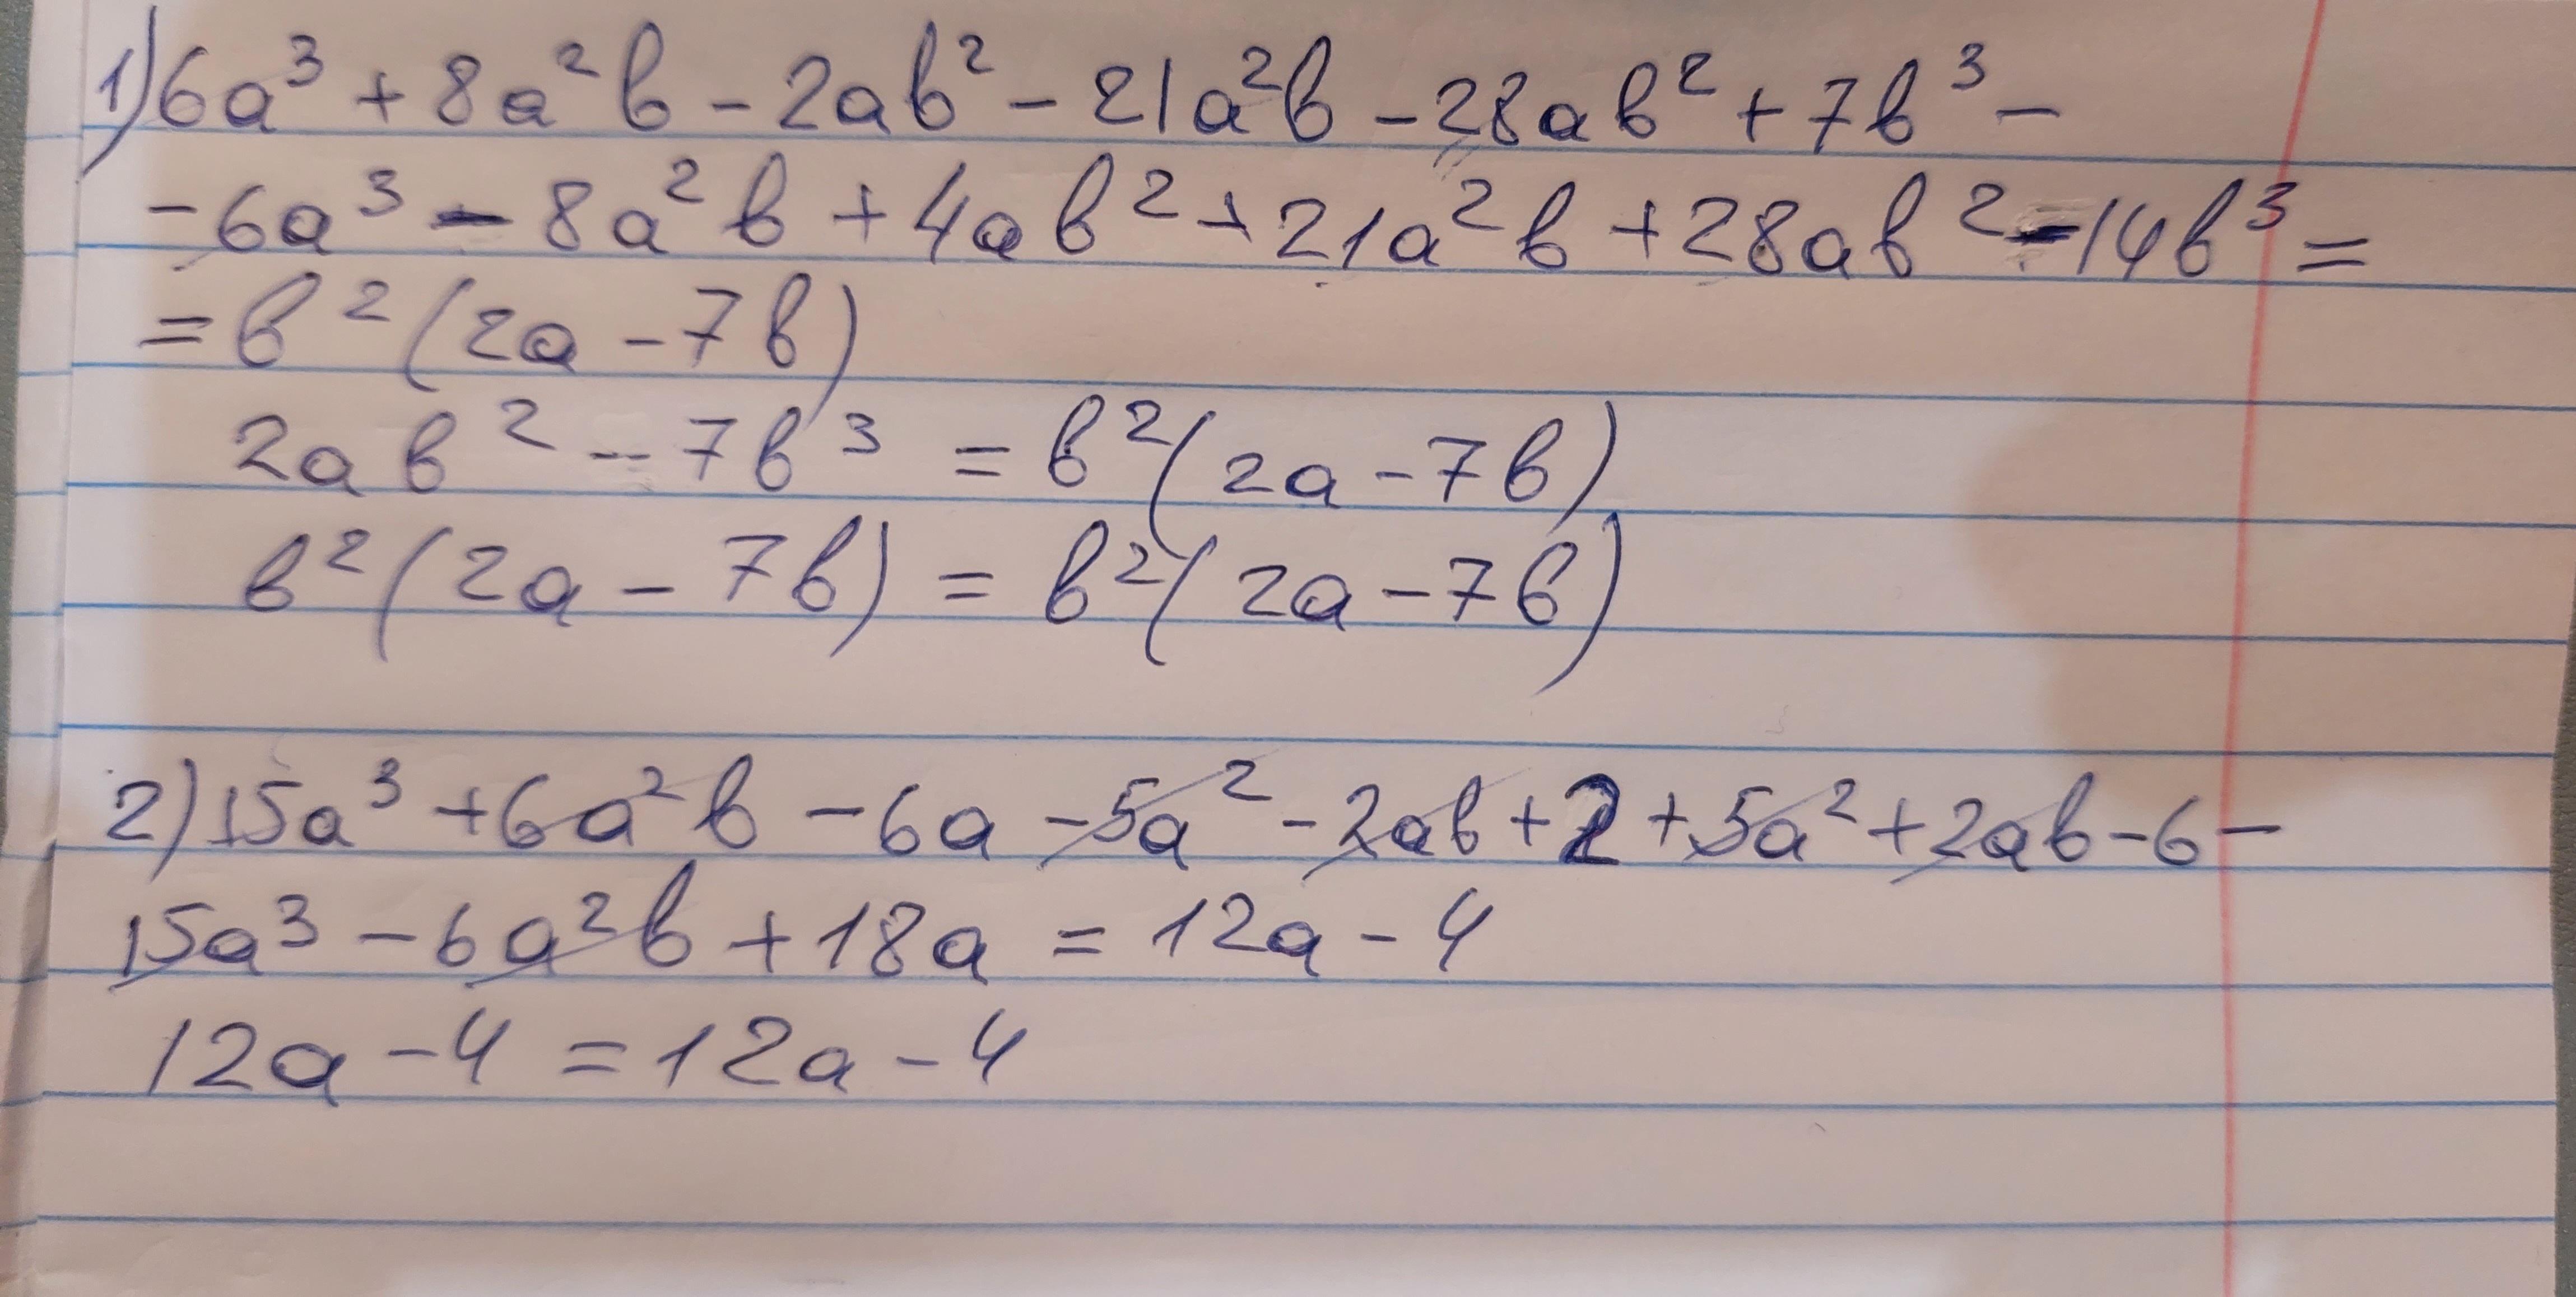 1) 6a³ + 8a²b - 2ab² - 21a²b - 28ab² + 7b³ -
- 6a³ - 8a²b + 4ab² + 21a²b + 28ab² - 14b³ =
= b²(2a - 7b)
2ab² - 7b³ = b²(2a - 7b)
b²(2a - 7b) = b²(2a - 7b)
2) 15a³ + 6a²b - 6a - 5a² - 2ab + 2 + 5a² + 2ab - 6 -
15a³ - 6a²b + 18a = 12a - 4
12a - 4 = 12a - 4